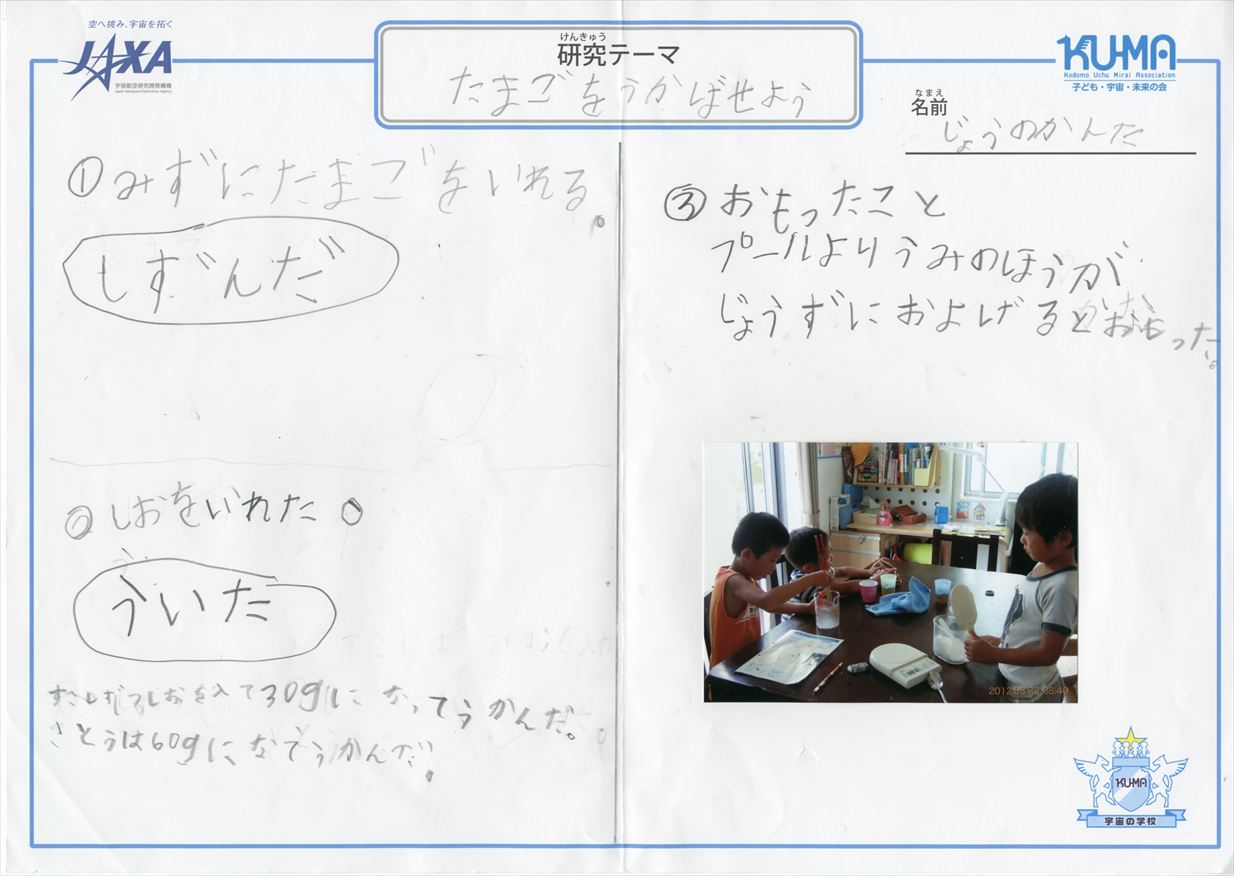 空へ挑み、宇宙を拓く
JAXA
宇宙航空研究開発機構
Japan Aerospace Exploration Agency
けんきゅう
研究テーマ
たまごをうかばせよう
KU-MA
Kodomo Uchu Mirai Association
子ども・宇宙・未来の会
なまえ
名前
じょうのかんた
①みずにたまごをいれる。
しずんだ
②しおをいれた。
ういた
すこしずつしおを入て30gになってうかんだ。
さとうは60gになてうかんだ。
③おもったこと
プールよりうみのほうが
じょうずにおよげるとおもった。
2012.08.29 08:40
KU-MA
宇宙の学校